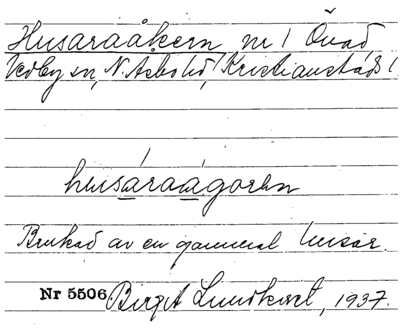 Husaraåkern nr 1 Övad,
Vedby sn, N. Åsbo hd, Kristianstads l.
husáraágoren
Brukad av en gammal husar.
Nr 5506 Birgit Lundkvist, 1937.